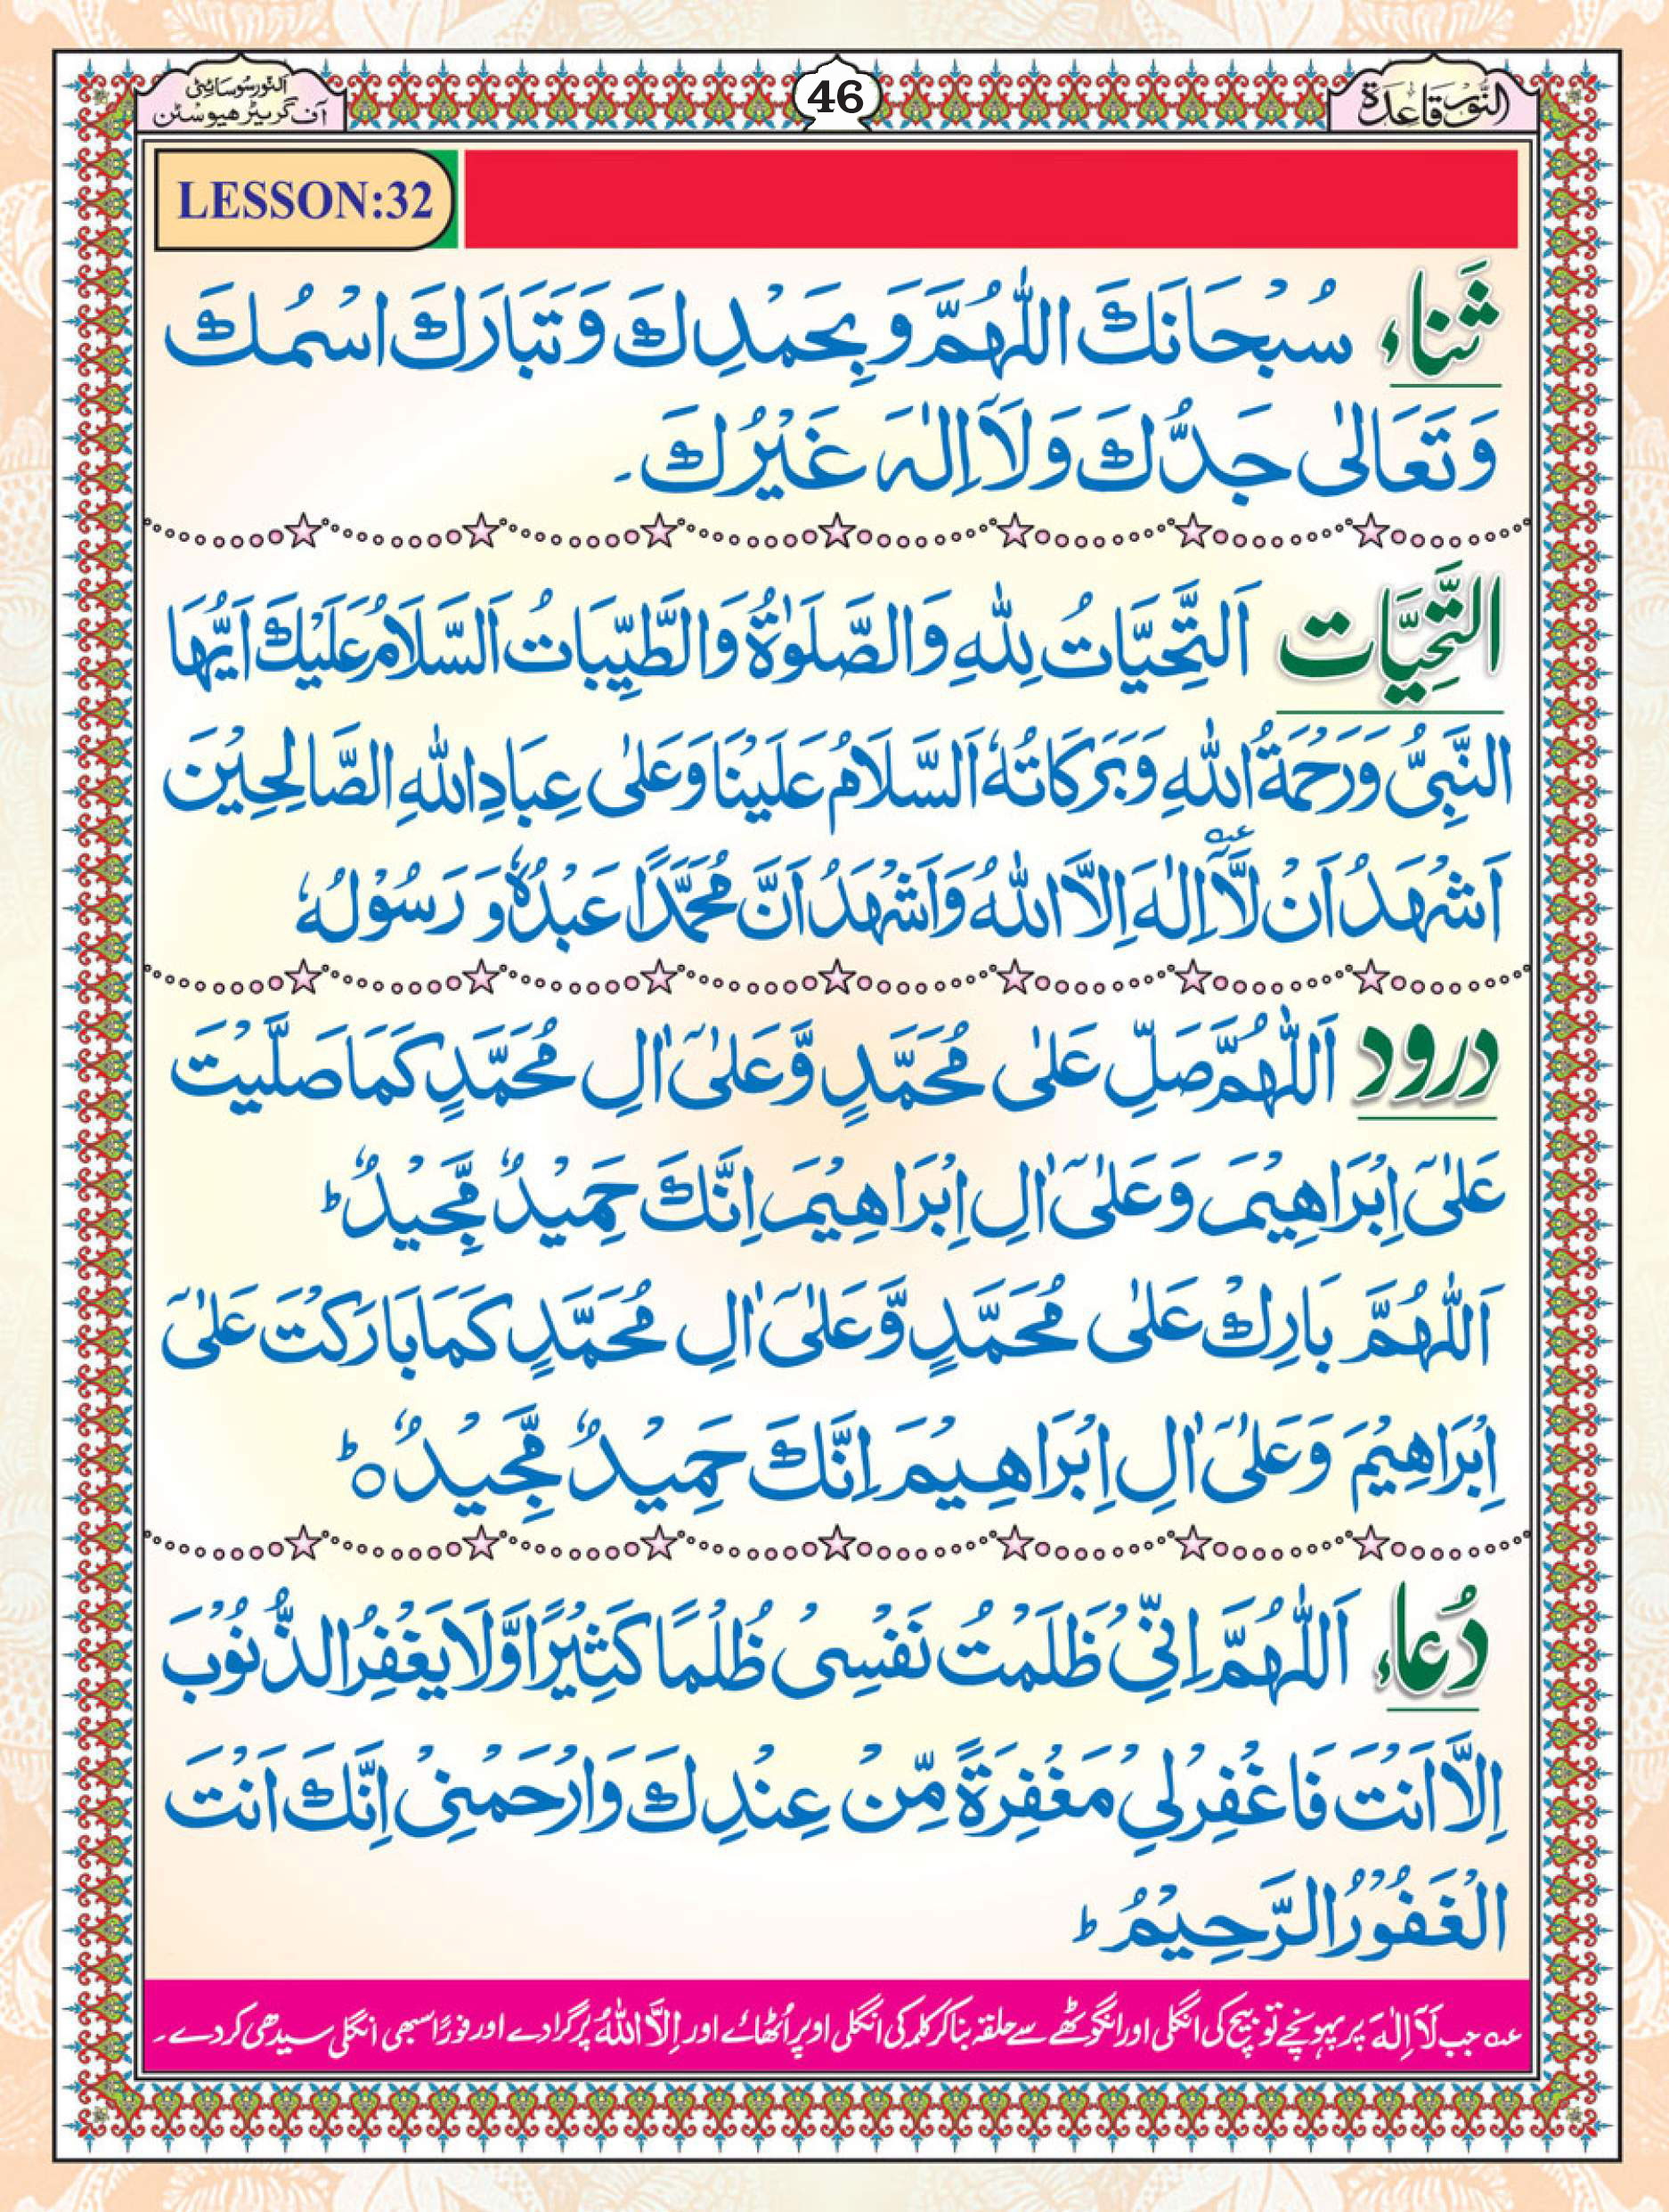 النُّوْر قَاعِدَة
46
اَلنّور سُوسَائِٹی
آف گریٹر ھیوسٹن
LESSON:32
ثَناء سُبْحَانَكَ اللّٰهُمَّ وَ بِحَمْدِكَ وَ تَبَارَكَ اسْمُكَ
وَ تَعَالٰى جَدُّكَ وَ لَآ اِلٰهَ غَيْرُكَ۔
التَّحِيَّات اَلتَّحِيَّاتُ لِلّٰهِ وَ الصَّلَوٰةُ وَ الطَّيِّبَاتُ اَلسَّلَامُ عَلَيْكَ اَيُّهَا
النَّبِىُّ وَرَحْمَةُ اللّٰهِ وَ بَرَكَاتُهٗ اَلسَّلَامُ عَلَيْنَا وَ عَلٰى عِبَادِ اللّٰهِ الصَّالِحِيْنَ
اَشْهَدُ اَنْ لَّآ اِلٰهَ اِلَّا اللّٰهُ وَ اَشْهَدُ اَنَّ مُحَمَّدًا عَبْدُهٗ وَ رَسُوْلُهٗ
درود اَللّٰهُمَّ صَلِّ عَلٰى مُحَمَّدٍ وَّ عَلٰىٓ اٰلِ مُحَمَّدٍ كَمَا صَلَّيْتَ
عَلٰىٓ اِبْرَاهِيْمَ وَ عَلٰىٓ اٰلِ اِبْرَاهِيْمَ اِنَّكَ حَمِيْدٌ مَّجِيْدٌ ؕ
اَللّٰهُمَّ بَارِكْ عَلٰى مُحَمَّدٍ وَّ عَلٰىٓ اٰلِ مُحَمَّدٍ كَمَا بَارَكْتَ عَلٰىٓ
اِبْرَاهِيْمَ وَ عَلٰىٓ اٰلِ اِبْرَاهِيْمَ اِنَّكَ حَمِيْدٌ مَّجِيْدٌ ○ؕ
دُعاء اَللّٰهُمَّ اِنِّىْ ظَلَمْتُ نَفْسِىْ ظُلْمًا كَثِيْرًا وَّلَا يَغْفِرُ الذُّنُوْبَ
اِلَّا اَنْتَ فَاغْفِرْلِىْ مَغْفِرَةً مِّنْ عِنْدِكَ وَارْحَمْنِىْ اِنَّكَ اَنْتَ
الْغَفُوْرُ الرَّحِيْمُ ؕ
عہ جب لَآ اِلٰهَ پر پہونچے تو بیچ کی انگلی اور انگوٹھے سے حلقہ بنا کر کلمہ کی انگلی اوپر اُٹھائے اور اِلَّا اللّٰهُ پر گرا دے اور فورًا سبھی انگلی سیدھی کردے۔